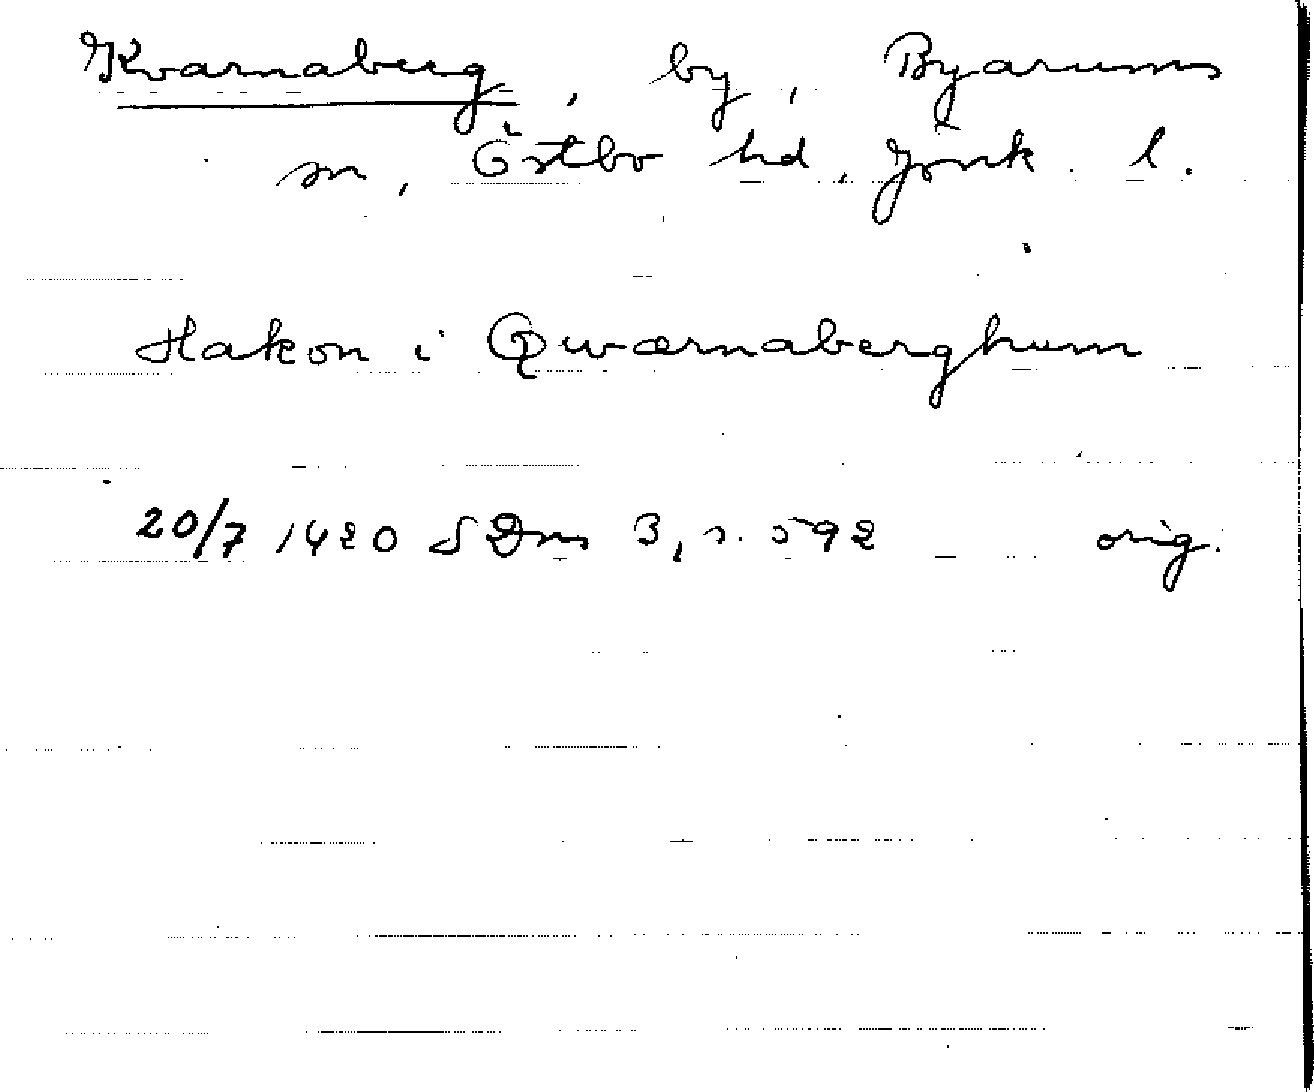 Kvarnaberg, by, Byarums
sn, Östbo hd, Jönk. l.
Hakon i Qwærnaberghum
20/7 1420 SDns 3, s. 592 orig.